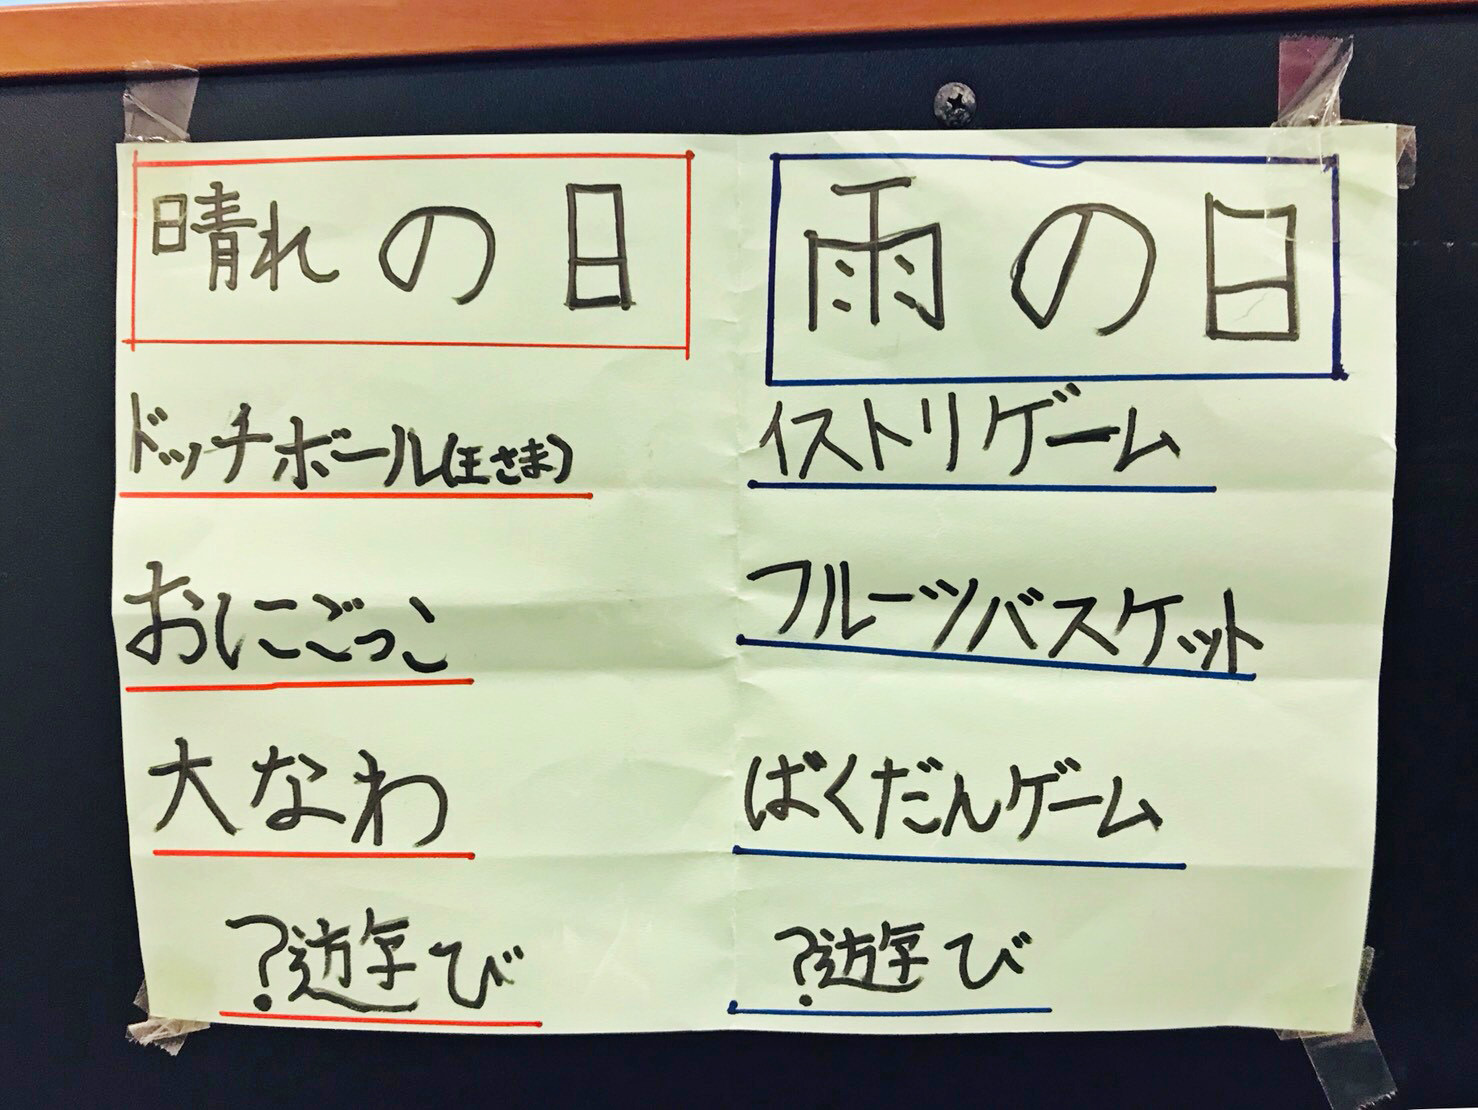 晴れの日
ドッチボール(王さま)
おにごごっこ
大なわ
?遊び
雨の日
イストリゲーム
フルーツバスケット
ばくだんゲーム
?遊び